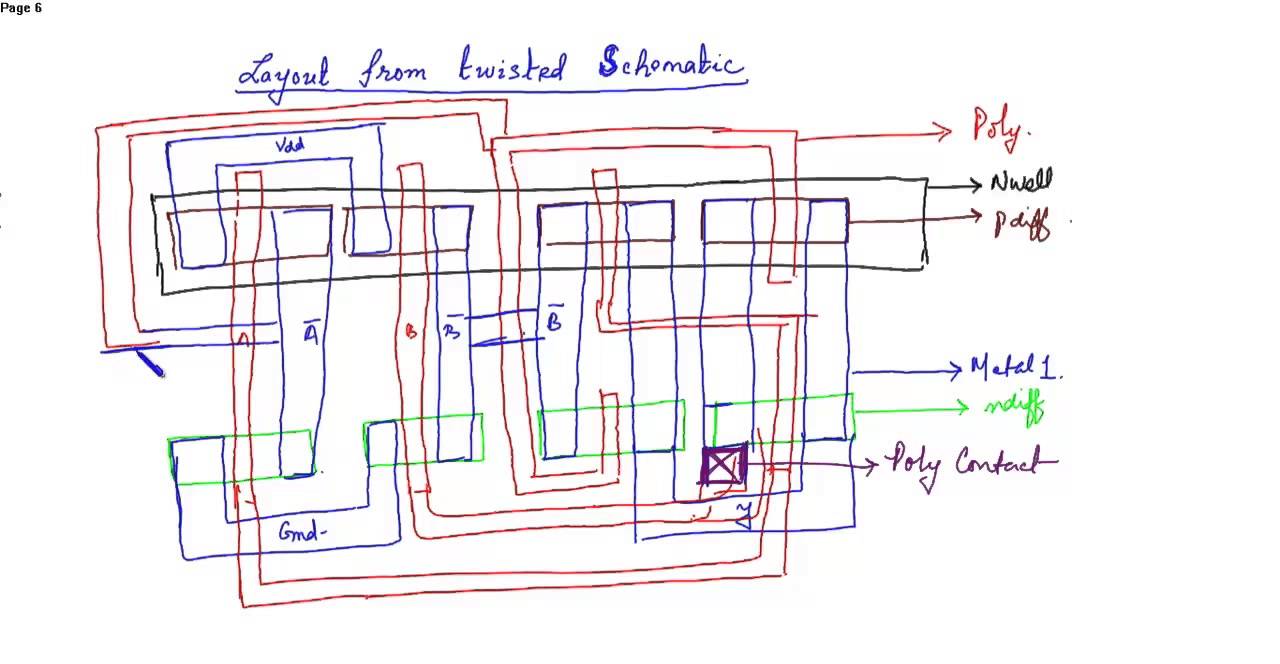 Page 6
Layout from twisted Schematic
Poly.
Vdd
Nwell
Pdiff
A
A̅
B
B̅
B̅
Metal 1.
ndiff
Poly Contact
Gnd
Y